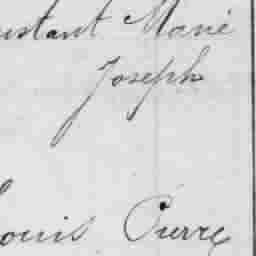 ustant Marie
Joseph
Louis Pierre